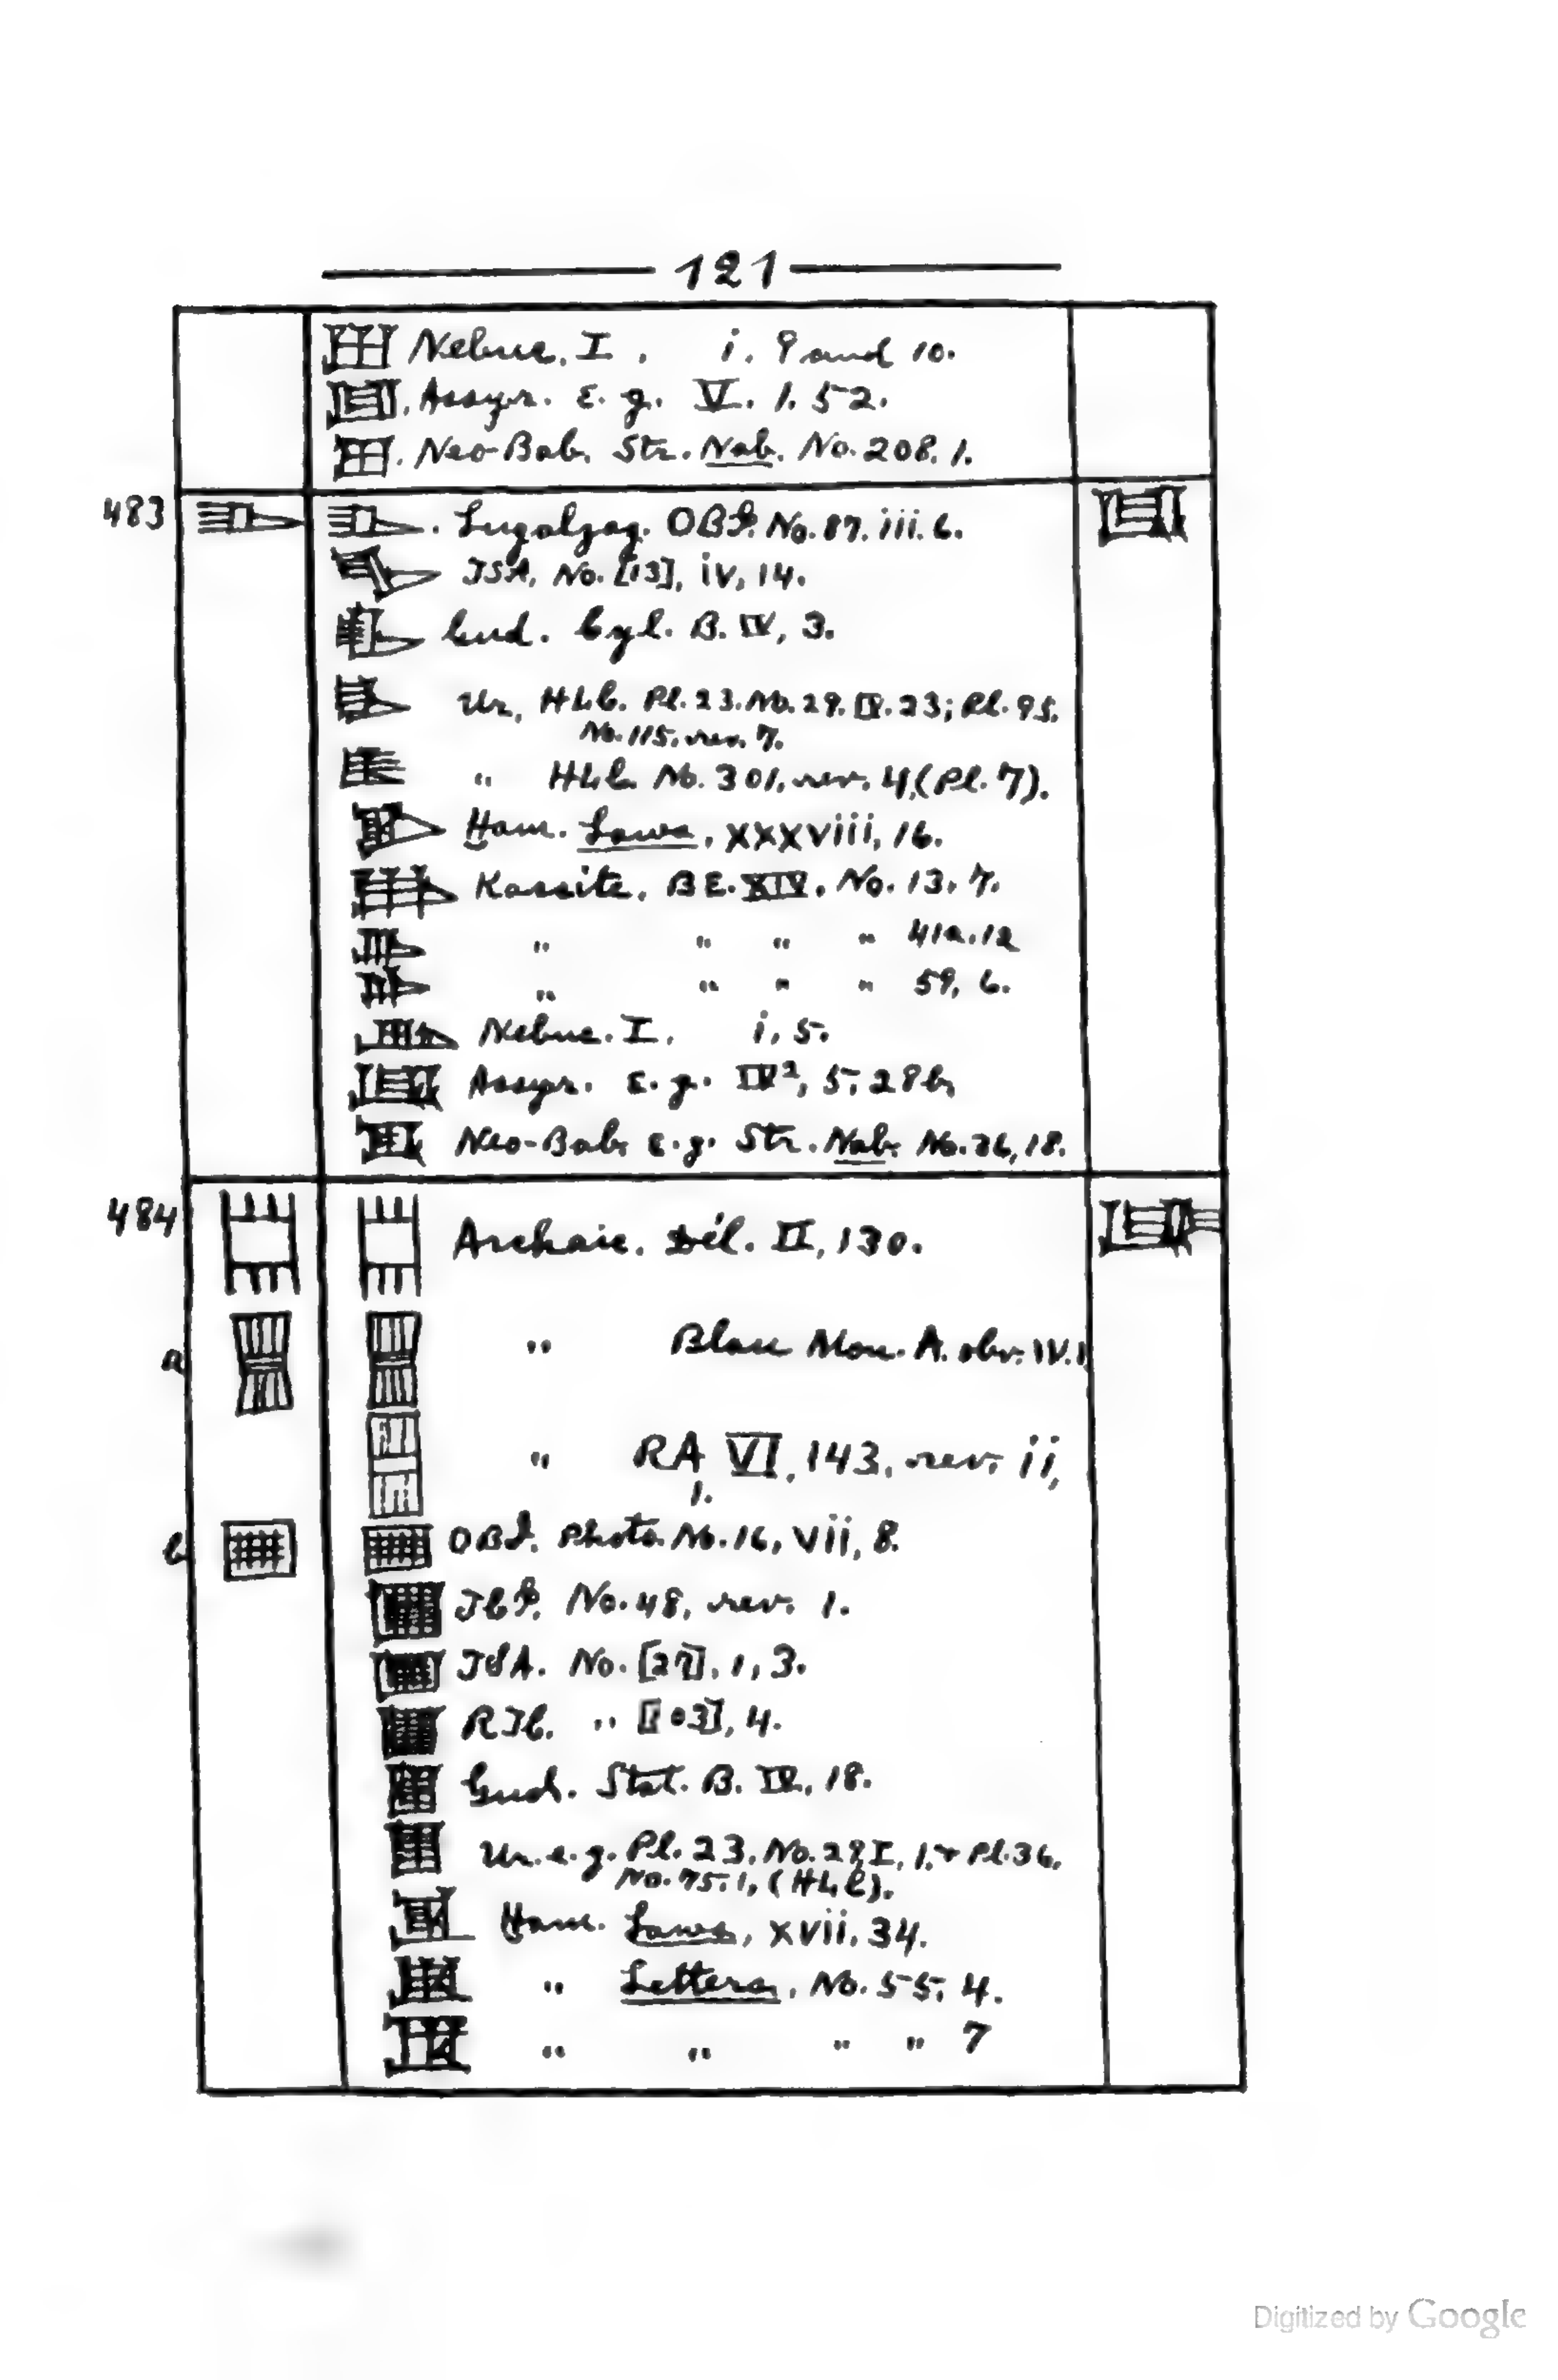 121
Nebuc. I. i. 9 and 10.
Assyr. E. g. V. 1. 52.
Neo-Bab. Str. Nab. No. 208. 1.
483 Lugalzag. OBI. No. 87. iii. 6.
ISA. No. [13], iv, 14.
Gud. Cyl. B. IV, 3.
Ur, HLC. Pl. 23. No. 29. IV. 23; Pl. 95.
No. 115. rev. 7.
" HLC. No. 301, rev. 4, (Pl. 7).
Ḫam. Laws, xxxviii, 16.
Kassite. BE. XIV. No. 13. 7.
" " " " 41a. 12
" " " " 59, 6.
Nebuc. I. i, 5.
Assyr. E. g. IV², 5, 28b,
Neo-Bab. E. g. Str. Nab. No. 26, 18.
484 Archaic. Dél. II, 130.
a " Blau Mon. A. obv. IV. 1
" RA VI, 143, rev. ii,
1.
b OBI. Photo No. 16, vii, 8.
No. 48, rev. 1.
ISA. No. [27], 1, 3.
4.
Gud. Stat. B. IV, 18.
Ur. e. g. Pl. 23. No. 29, I, 1, + Pl. 36,
No. 75. 1, (HLC).
Ḫam. Laws, xvii, 34.
" Letters, No. 55, 4.
" " " " 7
Digitized by Google